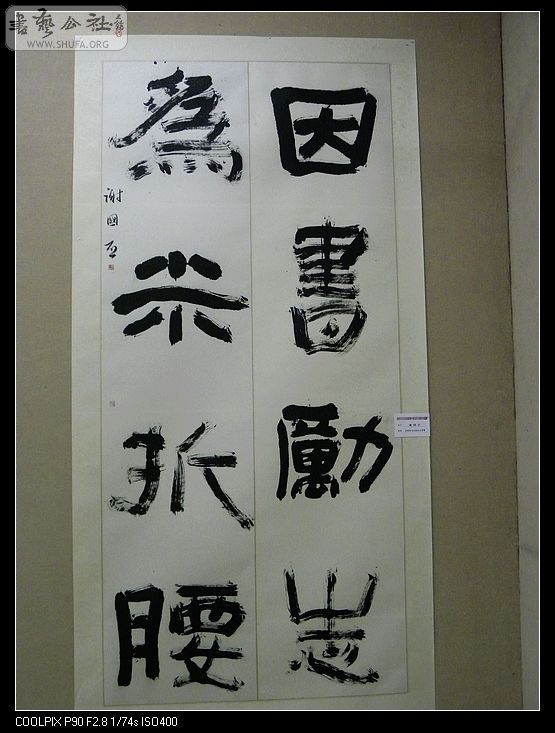 因書勵志
為米折腰
謝國亞
書藝公社
WWW.SHUFA.ORG
COOLPIX P90 F2.8 1/74s ISO400